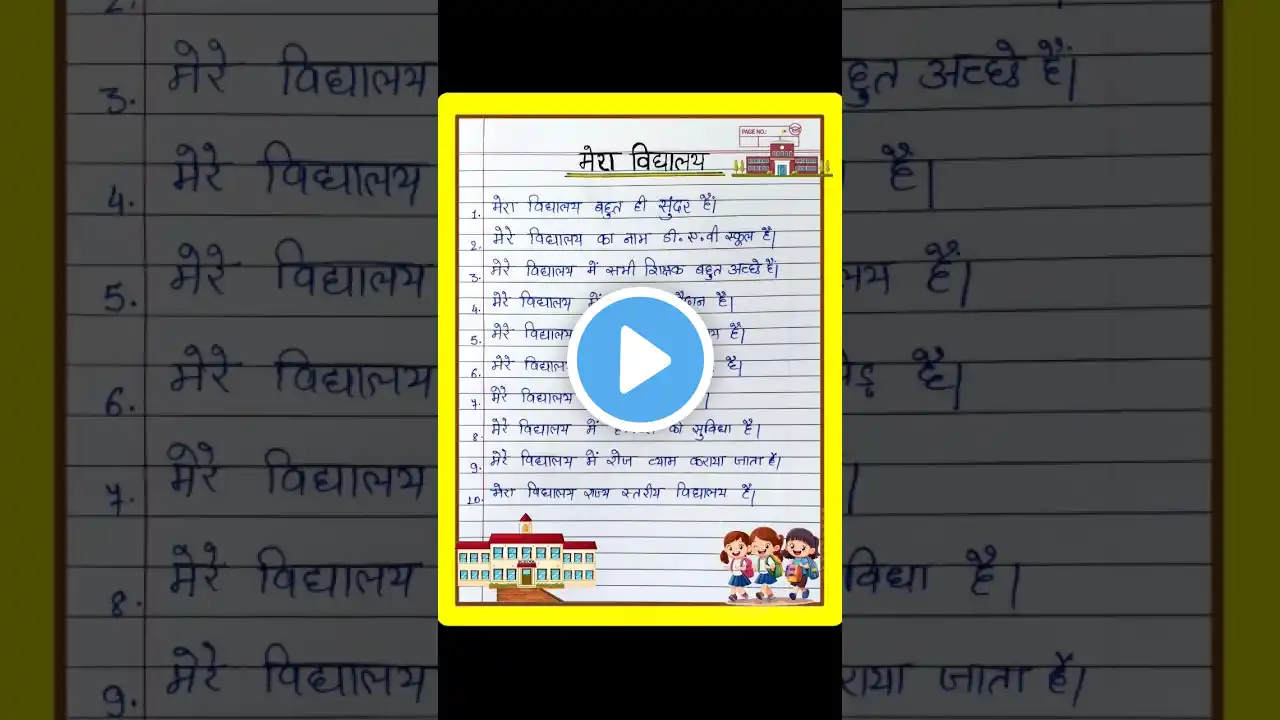 PAGE NO.:
मेरा विद्यालय
1. मेरा विद्यालय बहुत ही सुंदर हैं।
2. मेरे विद्यालय का नाम डी.ए.वी स्कूल है।
3. मेरे विद्यालय में सभी शिक्षक बहुत अच्छे हैं।
4. मेरे विद्यालय में है।
5. मेरे विद्यालय हैं।
6. मेरे विद्यालय है।
7. मेरे विद्यालय
8. मेरे विद्यालय में की सुविधा है।
9. मेरे विद्यालय में रोज व्याम कराया जाता है।
10. मेरा विद्यालय राज्य स्तरीय विद्यालय है।